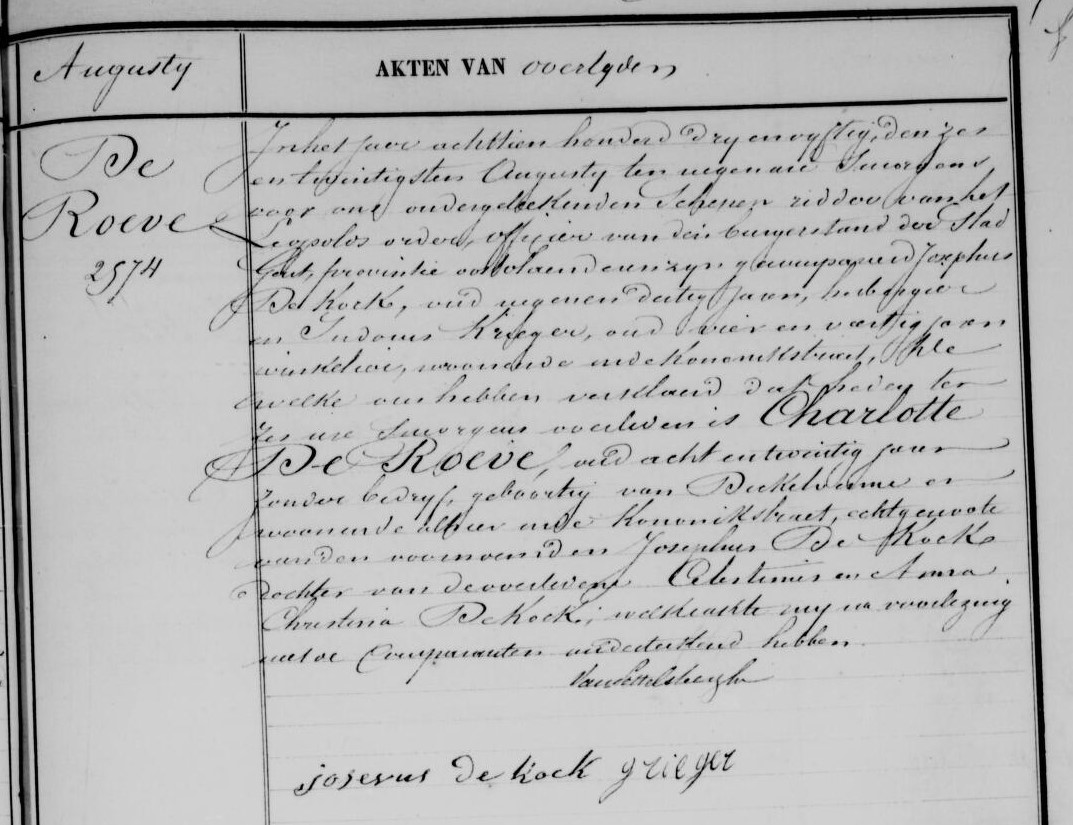 Augusty
AKTEN VAN overlyden
De
Roeve
2574
In het jaar achttien honderd dry en vyftig, den zes
en twintigsten Augusty ten negen ure Smorgens
voor ons ondergeteekenden Schepen ridder van het
Leopolds order, officier van den burgerstand der Stad
Gent, provintie oostvlaenderen zyn gecompareerd Josephus
De Kock, oud negenendertig jaren, herbergier
en Ludovicus Krieger, oud vier en veertig jaren
winkelier, woonende inde Kanonikstraet, de
welke ons hebben verklaerd dat heden ten
zes ure Smorgens overleden is Charlotte
De Roeve, oud acht entwintig jaren
zonder bedryf, geboortig van Bekelveirne en
woonende alhier inde Kanonikstraet, echtgenoote
van den voornoemden Josephus De Kock
dochter van de overledene Celestinus en Anna
Christina De Kock; welke akte wy na voorlezing
met de Comparanten onderteekend hebben.
josevus de kock grieger